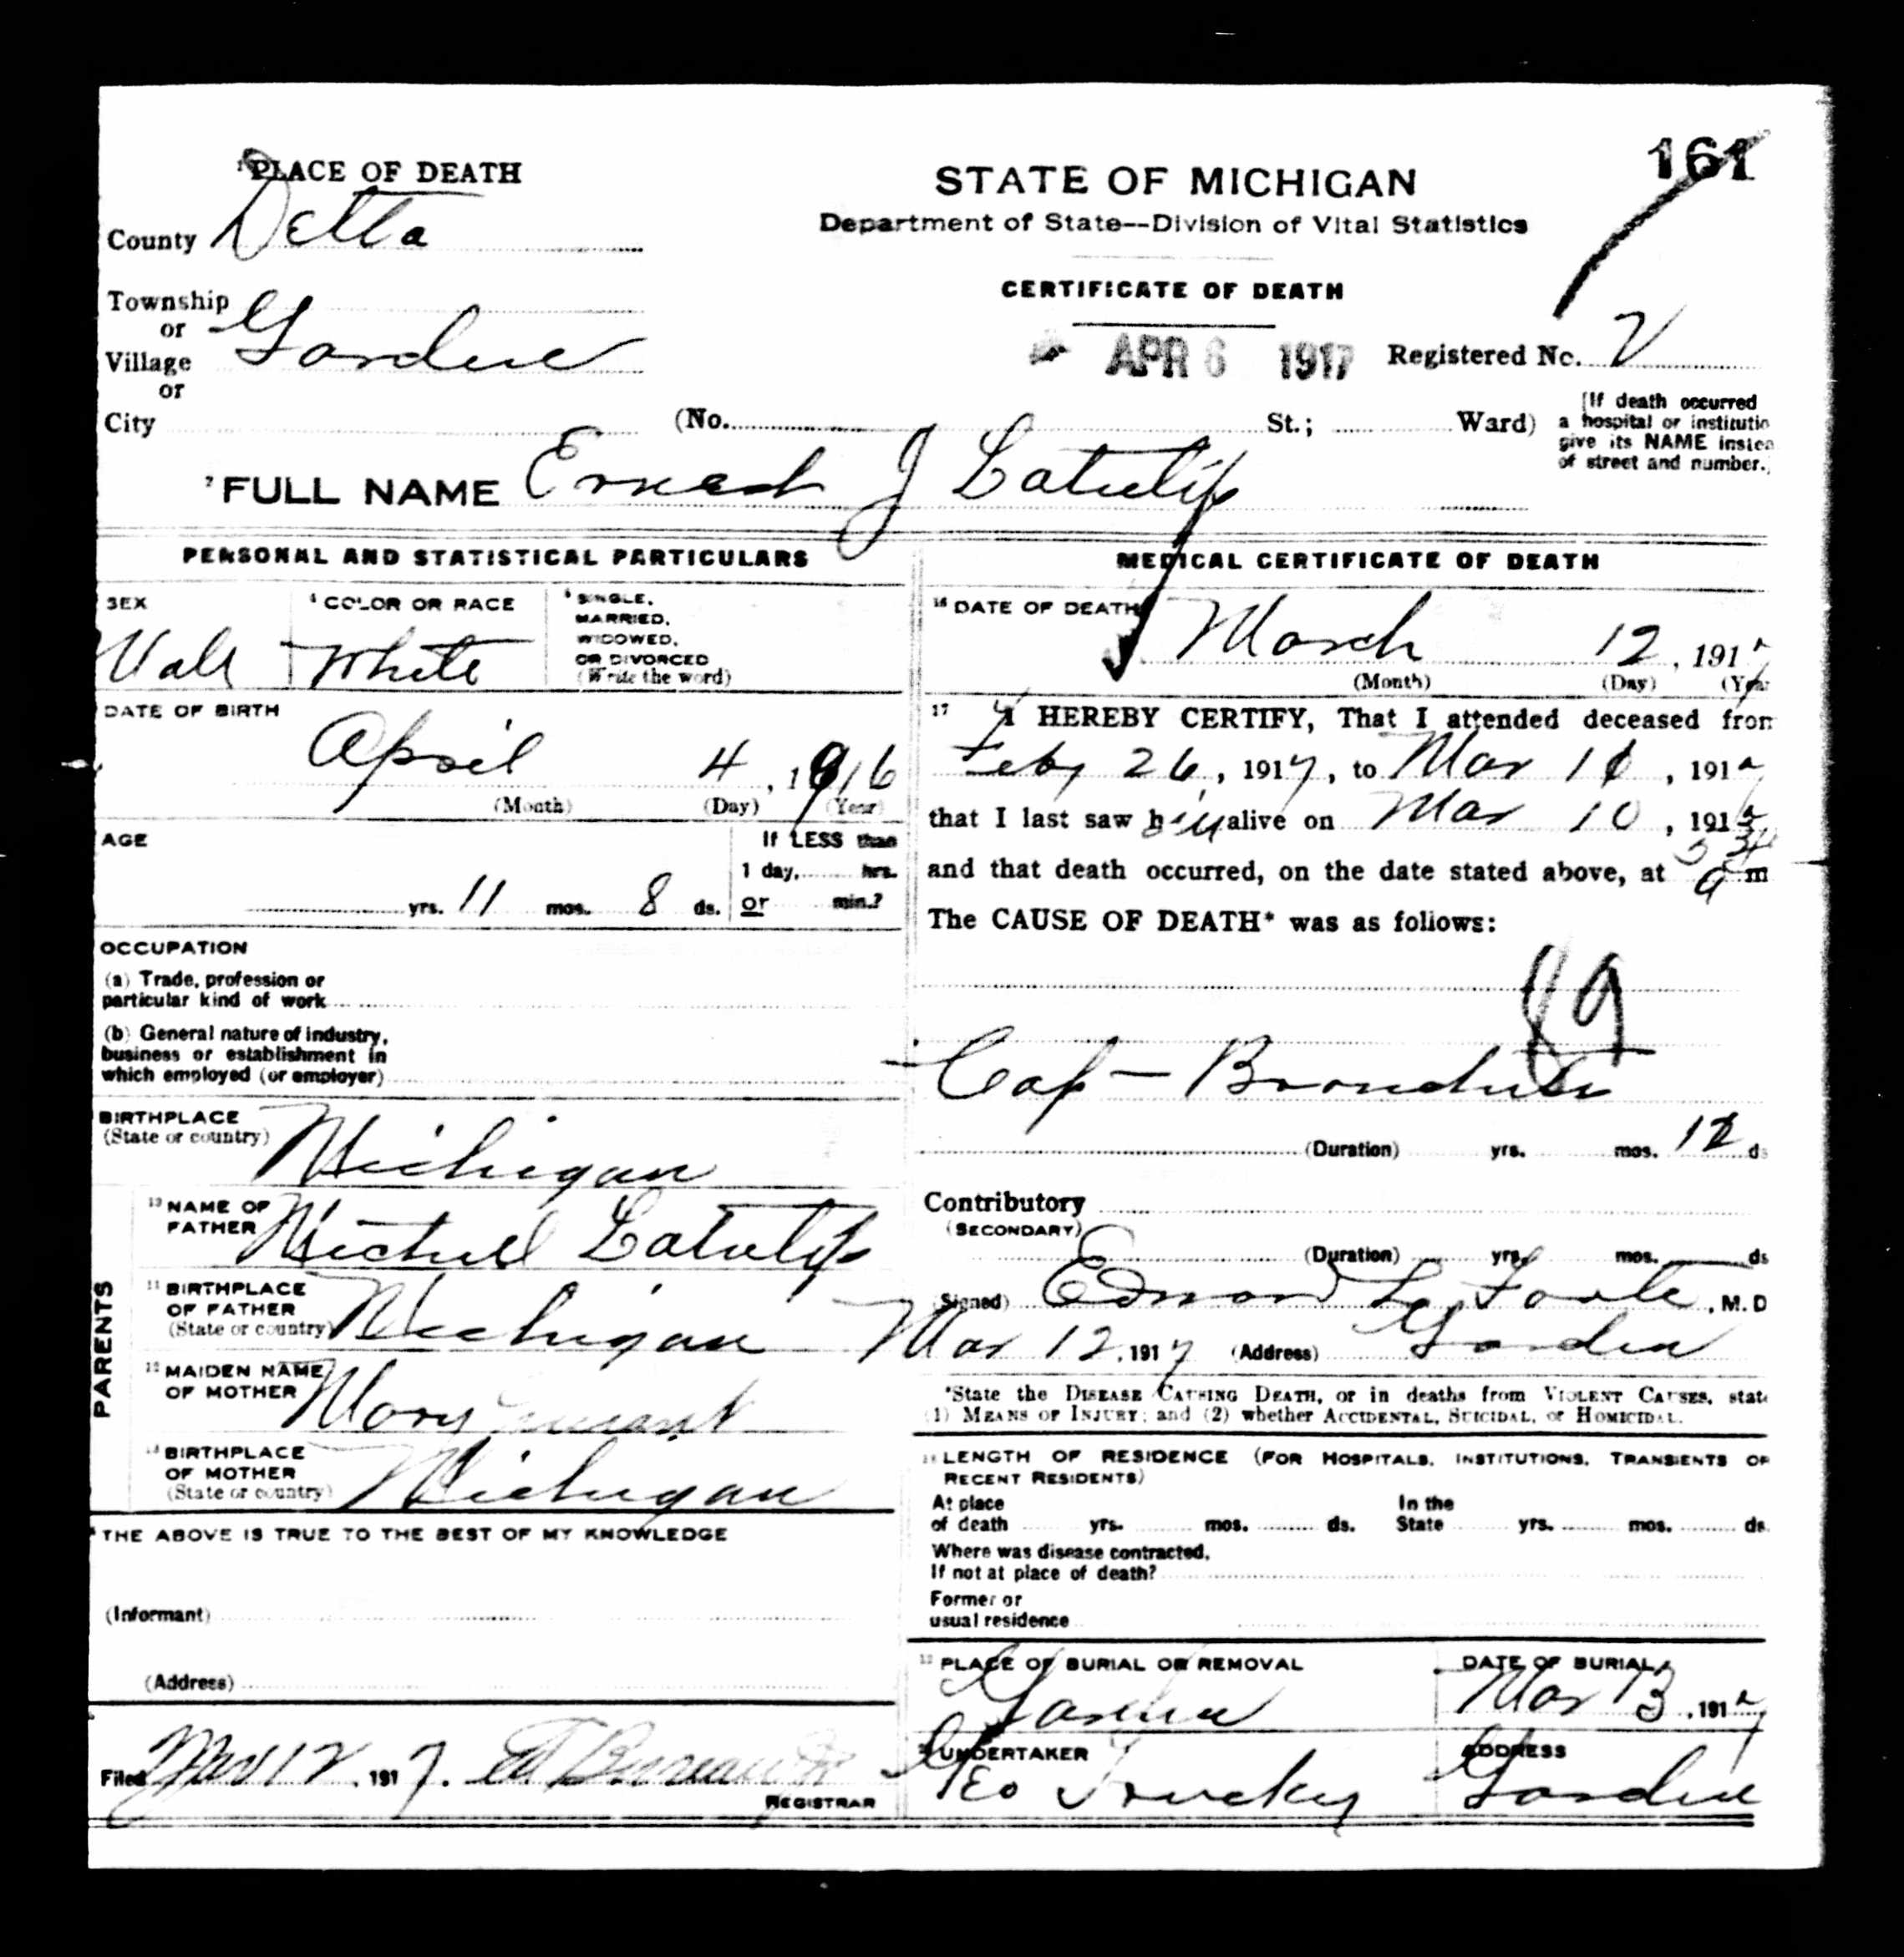 161
¹PLACE OF DEATH
STATE OF MICHIGAN
Department of State--Division of Vital Statistics
County Delta
CERTIFICATE OF DEATH
Township
or
Village Garden
or
APR 6 1917 Registered No. 2
City (No. St.; Ward)
[If death occurred
a hospital or institutio
give its NAME instea
of street and number.]
² FULL NAME Ernest J Latulip
PERSONAL AND STATISTICAL PARTICULARS
SEX Male
⁴ COLOR OR RACE White
⁵ SINGLE,
MARRIED,
WIDOWED,
OR DIVORCED
(Write the word)
DATE OF BIRTH
April 4, 1916
(Month) (Day) (Year)
AGE
yrs. 11 mos. 8 ds.
If LESS than
1 day, hrs.
or min.?
OCCUPATION
(a) Trade, profession or
particular kind of work
(b) General nature of industry,
business or establishment in
which employed (or employer)
BIRTHPLACE
(State or country) Michigan
PARENTS
¹⁰ NAME OF
FATHER Michael Latulip
¹¹ BIRTHPLACE
OF FATHER
(State or country) Michigan
¹² MAIDEN NAME
OF MOTHER Mary
¹³ BIRTHPLACE
OF MOTHER
(State or country) Michigan
THE ABOVE IS TRUE TO THE BEST OF MY KNOWLEDGE
(Informant)
(Address)
Filed Mar 12, 1917.
REGISTRAR
MEDICAL CERTIFICATE OF DEATH
¹⁶ DATE OF DEATH
March 12, 1917
(Month) (Day) (Year
17 I HEREBY CERTIFY, That I attended deceased from
Feby 26, 1917, to Mar 11, 1917
that I last saw him alive on Mar 10, 1917
and that death occurred, on the date stated above, at 5 30 a m
The CAUSE OF DEATH* was as follows:
89
Cap - Bronchitis
(Duration) yrs. mos. 12 ds
Contributory
(SECONDARY)
(Duration) yrs. mos. ds
(Signed) Edmond L. Foote, M. D
Mar 12, 1917 (Address) Garden
*State the DISEASE CAUSING DEATH, or in deaths from VIOLENT CAUSES, state
(1) MEANS OF INJURY; and (2) whether ACCIDENTAL, SUICIDAL, or HOMICIDAL.
¹⁸ LENGTH OF RESIDENCE (FOR HOSPITALS, INSTITUTIONS, TRANSIENTS OR
RECENT RESIDENTS)
At place In the
of death yrs. mos. ds. State yrs. mos. ds.
Where was disease contracted,
If not at place of death?
Former or
usual residence
¹⁹ PLACE OF BURIAL OR REMOVAL DATE OF BURIAL
Garden Mar 13, 1917
²⁰ UNDERTAKER ADDRESS
Geo Truckey Garden